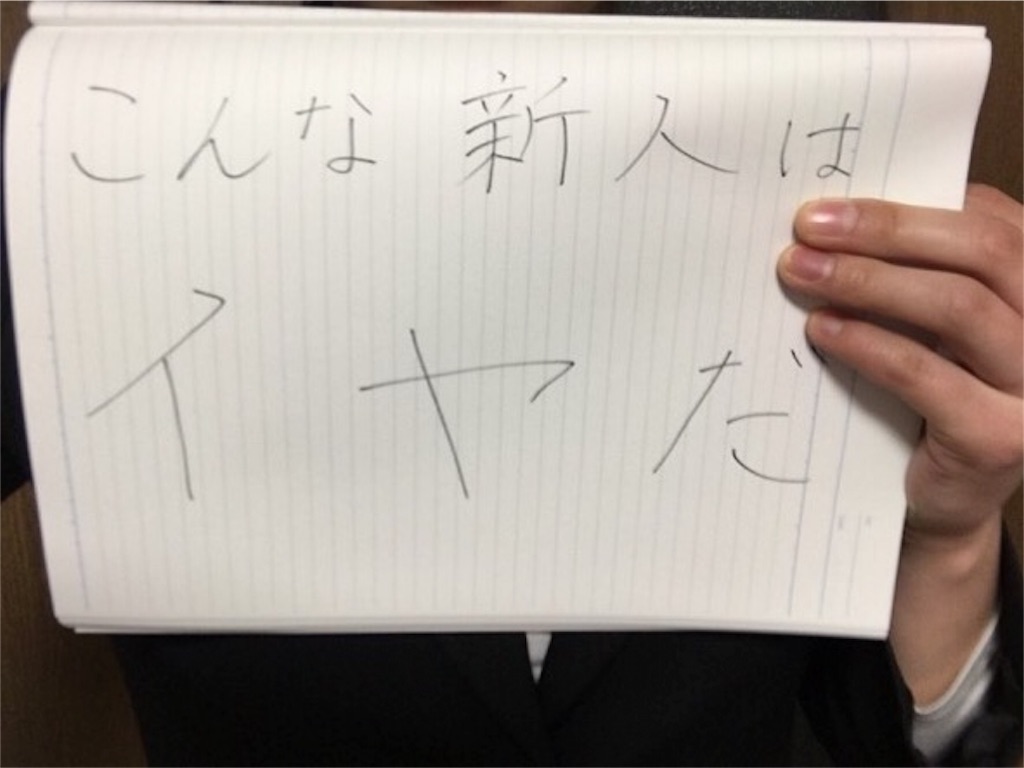 こんな新人は
イヤだ